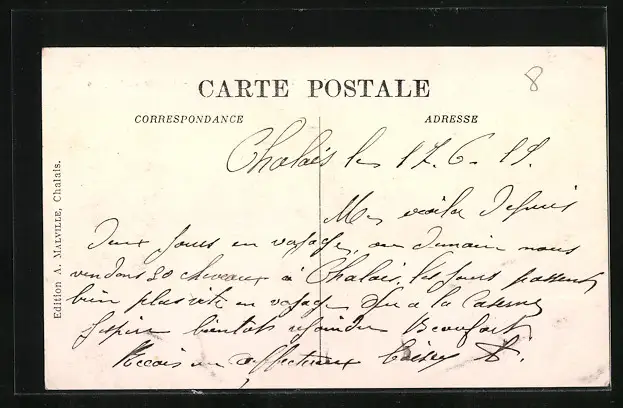 8
CARTE POSTALE
CORRESPONDANCE
ADRESSE
Edition A. MALVILLE, Chalais.
Chalais le 17. 6. 19.
Me voila depuis
deux jours en voyage, ou demain nous
vendons 20 cheveaux à Chalais, les jours passent
bien plus vite en voyage qu'a la caserne
J'espère bientot rejoindre Beaufort
Recois un affectueux